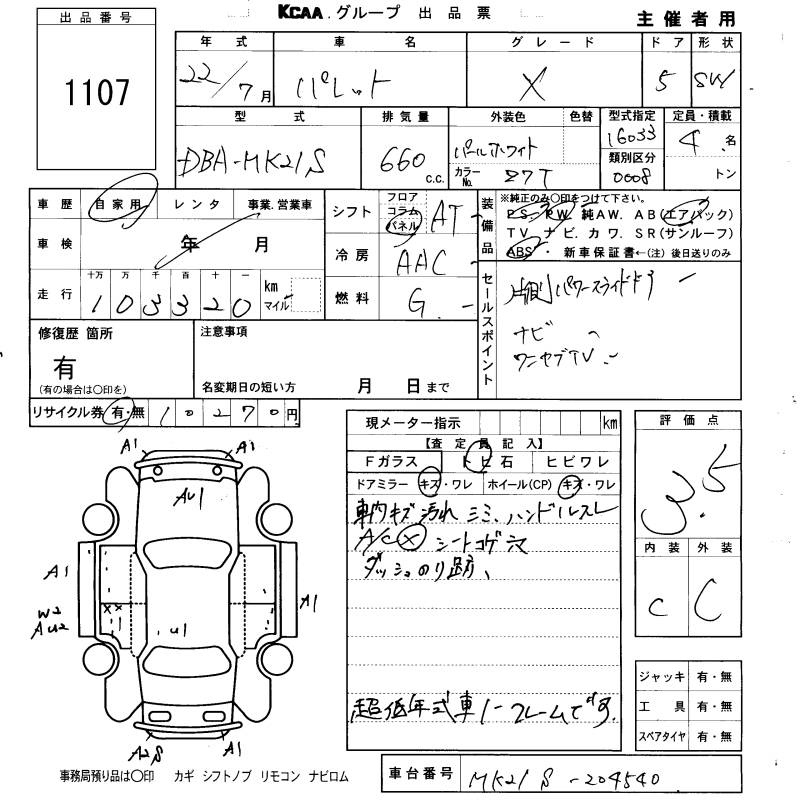 KCAA.グループ 出品票
主催者用
出品番号
1107
年式 車名 グレード ドア 形状
22/7月 パレット X 5 SW
型式 排気量 外装色 色替 型式指定 定員・積載
DBA-MK21S 660 c.c. パールホワイト 16033 4名
カラーNo. Z7T 類別区分 0008 トン
車歴 自家用 レンタ 事業.営業車
車検 年 月
走行 十万 万 千 百 十 一 km マイル
103320
シフト フロア コラム パネル AT
冷房 AAC
燃料 G
装備品 ※純正のみ〇印をつけて下さい。
PS. PW. 純AW. AB(エアバック)
TV. ナビ. カワ. SR(サンルーフ)
ABS 新車保証書←(注)後日送りのみ
セールスポイント
片側パワースライドドア
ナビ
ワンセグTV
修復歴 箇所
有
(有の場合は〇印を)
注意事項
名変期日の短い方 月 日まで
リサイクル券 有・無 10270円
現メーター指示 km
【査定員記入】
Fガラス トビ石 ヒビワレ
ドアミラー キズ・ワレ ホイール(CP) キズ・ワレ
車内キズ 汚れ シミ、ハンドルスレ
A/C X シートコゲ穴
ダッシュのり跡、
超低年式車ノークレームです。
評価点
3.5
内装 外装
C C
ジャッキ 有・無
工具 有・無
スペアタイヤ 有・無
A1 A1
AU1
A1
W2
AU2
U1
A1
A2S A1
事務局預り品は〇印 カギ シフトノブ リモコン ナビロム
車台番号 MK21S-204540